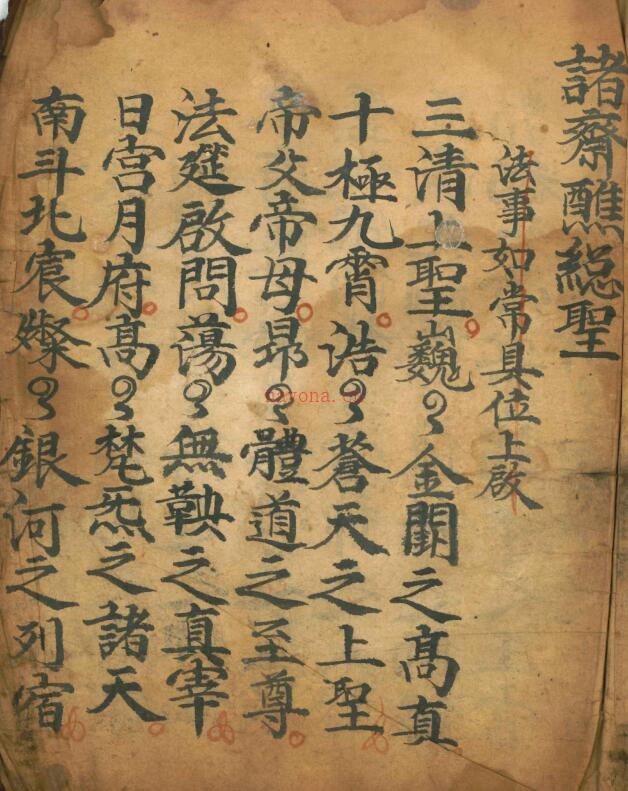 諸齋醮総聖
法事如常具位上啟
三清上聖巍〻金闕之髙真
十極九霄浩〻蒼天之上聖
帝父帝母昂〻體道之至尊
法筵啟問蕩〻無鞅之真宰
日宮月府髙〻梵炁之諸天
南斗北宸燦〻銀河之列宿
nayona.cn